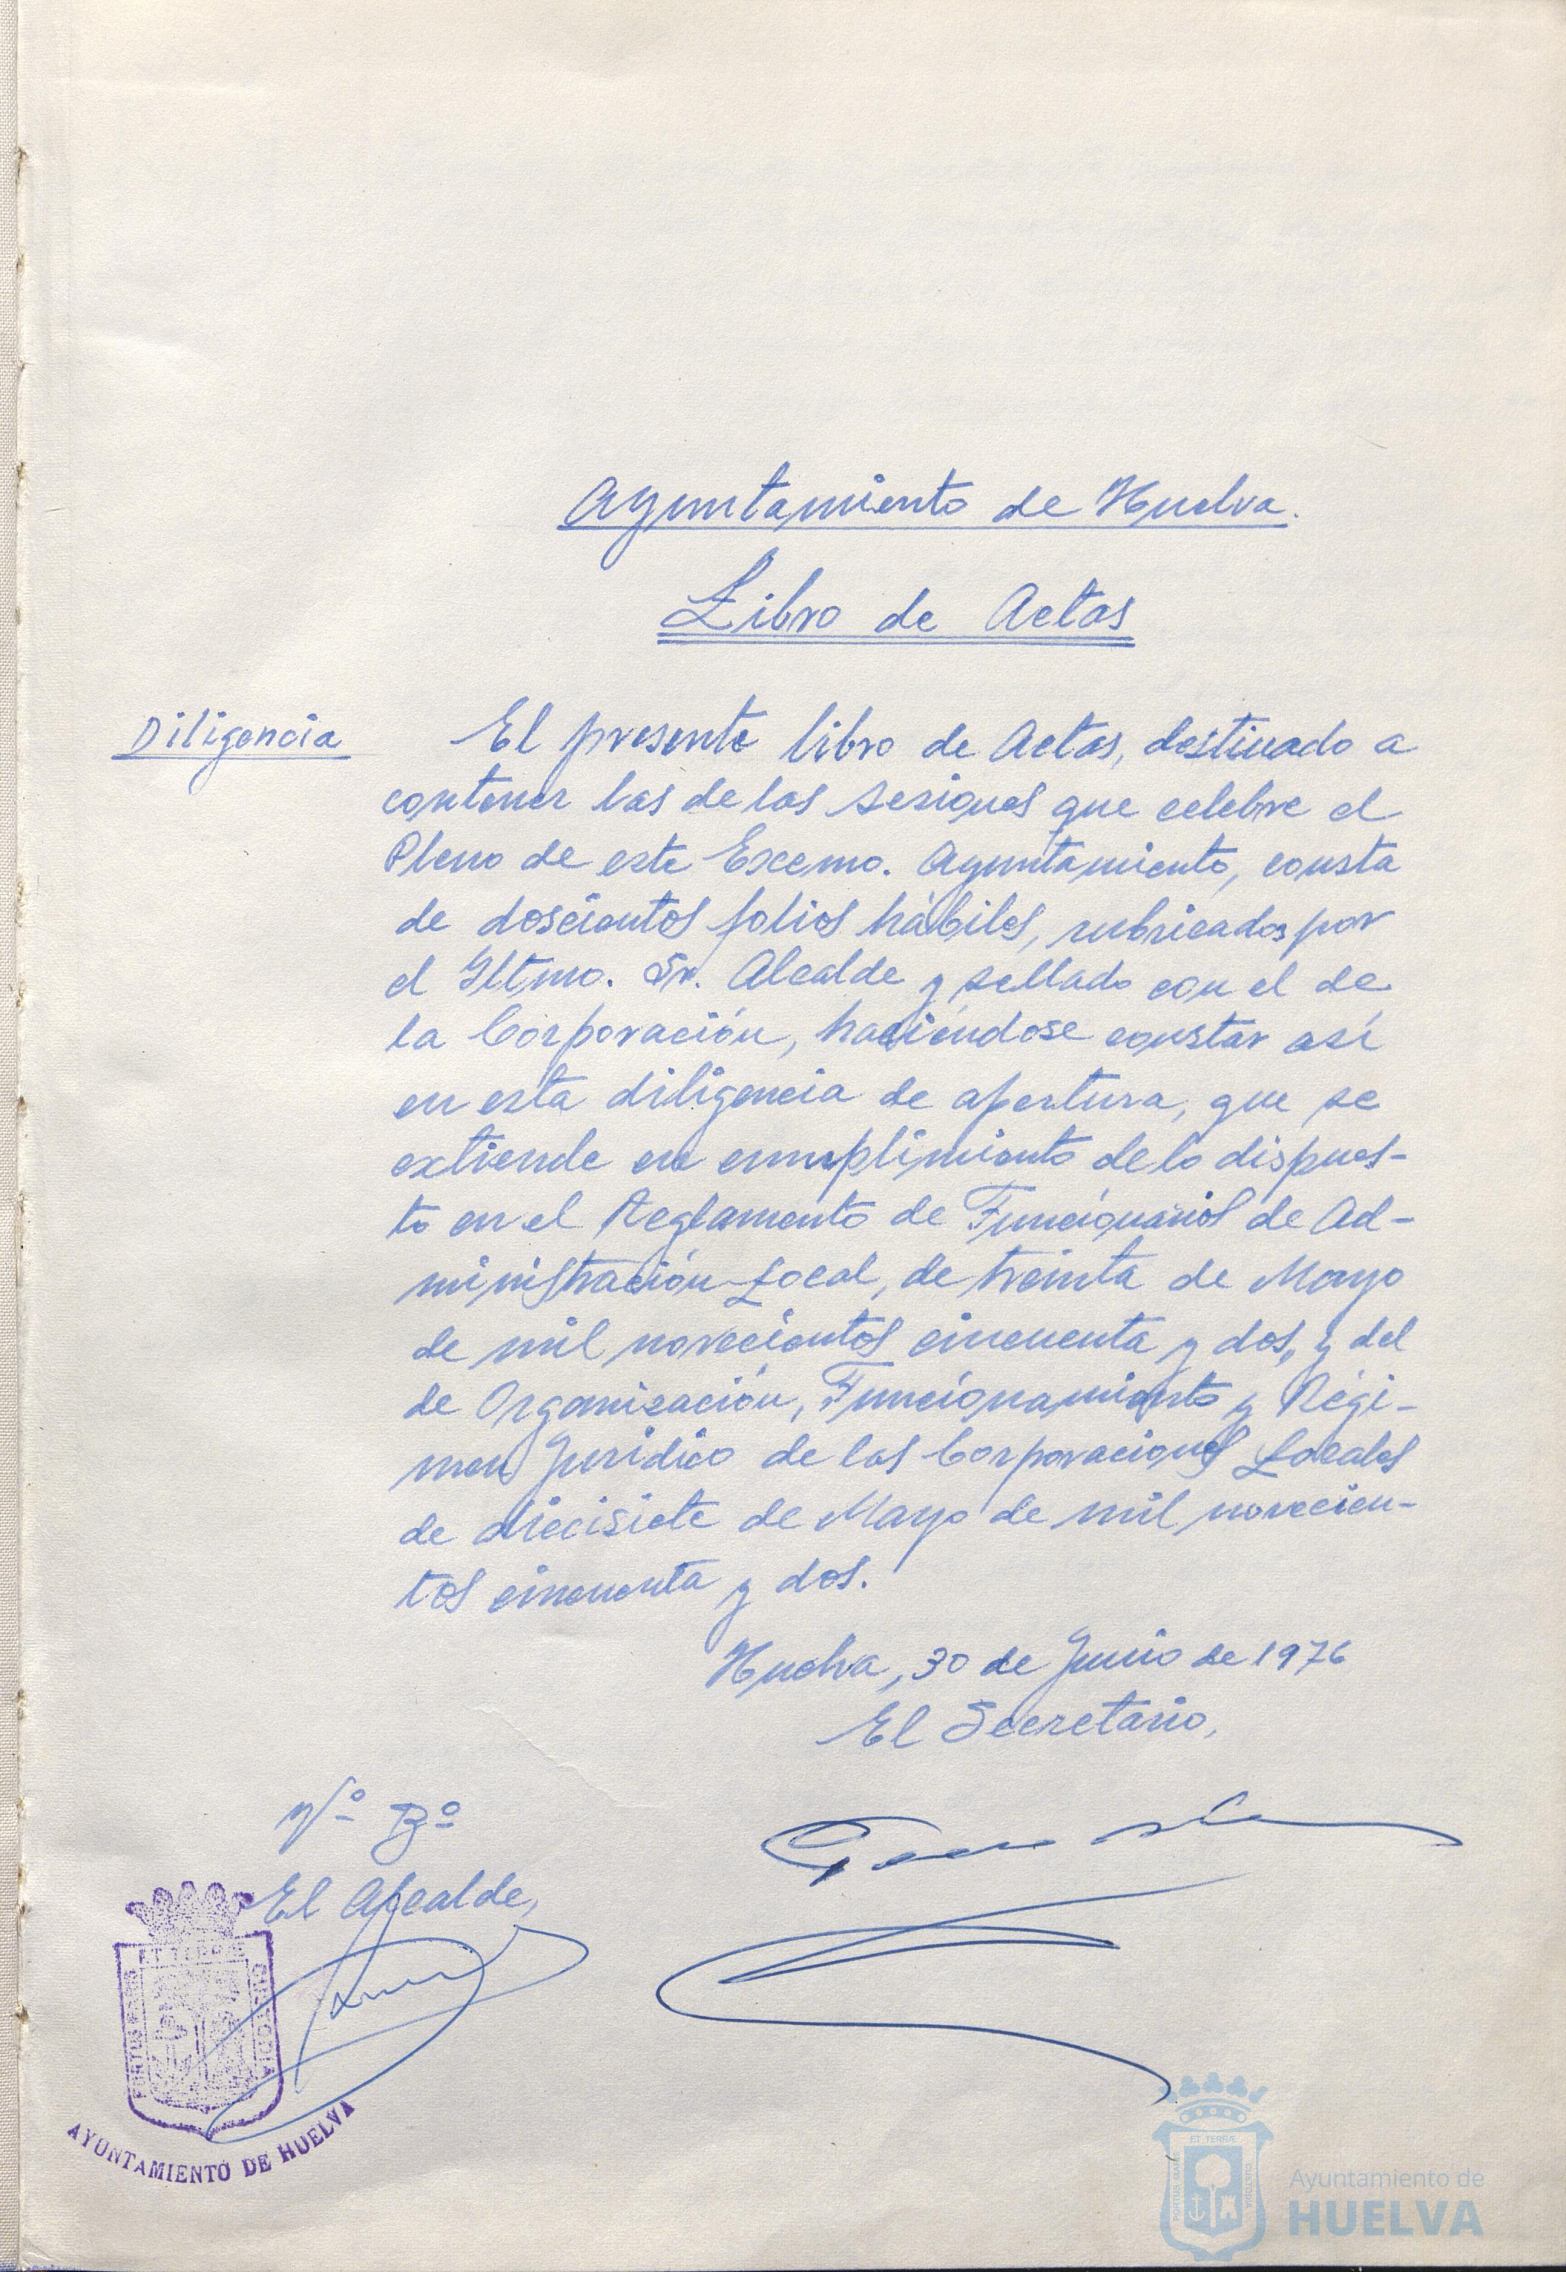 Ayuntamiento de Huelva.
Libro de Actas
Diligencia
El presente libro de Actas, destinado a
contener las de las sesiones que celebre el
Pleno de este Excmo. Ayuntamiento, consta
de doscientos folios hábiles, rubricados por
el Iltmo. Sr. Alcalde y sellado con el de
la Corporación, haciéndose constar así
en esta diligencia de apertura, que se
extiende en cumplimiento de lo dispues-
to en el Reglamento de Funcionarios de Ad-
ministración Local, de treinta de Mayo
de mil novecientos cincuenta y dos, y del
de Organización, Funcionamiento y Régi-
men Jurídico de las Corporaciones Locales
de diecisiete de Mayo de mil novecien-
tos cincuenta y dos.
Huelva, 30 de Junio de 1976
El Secretario,
Vº Bº
El Alcalde,
ET TERRÆ
PORTUS MARIS
CUSTODIA
AYUNTAMIENTO DE HUELVA
ET TERRÆ
PORTUS MARIS
CUSTODIA
Ayuntamiento de
HUELVA